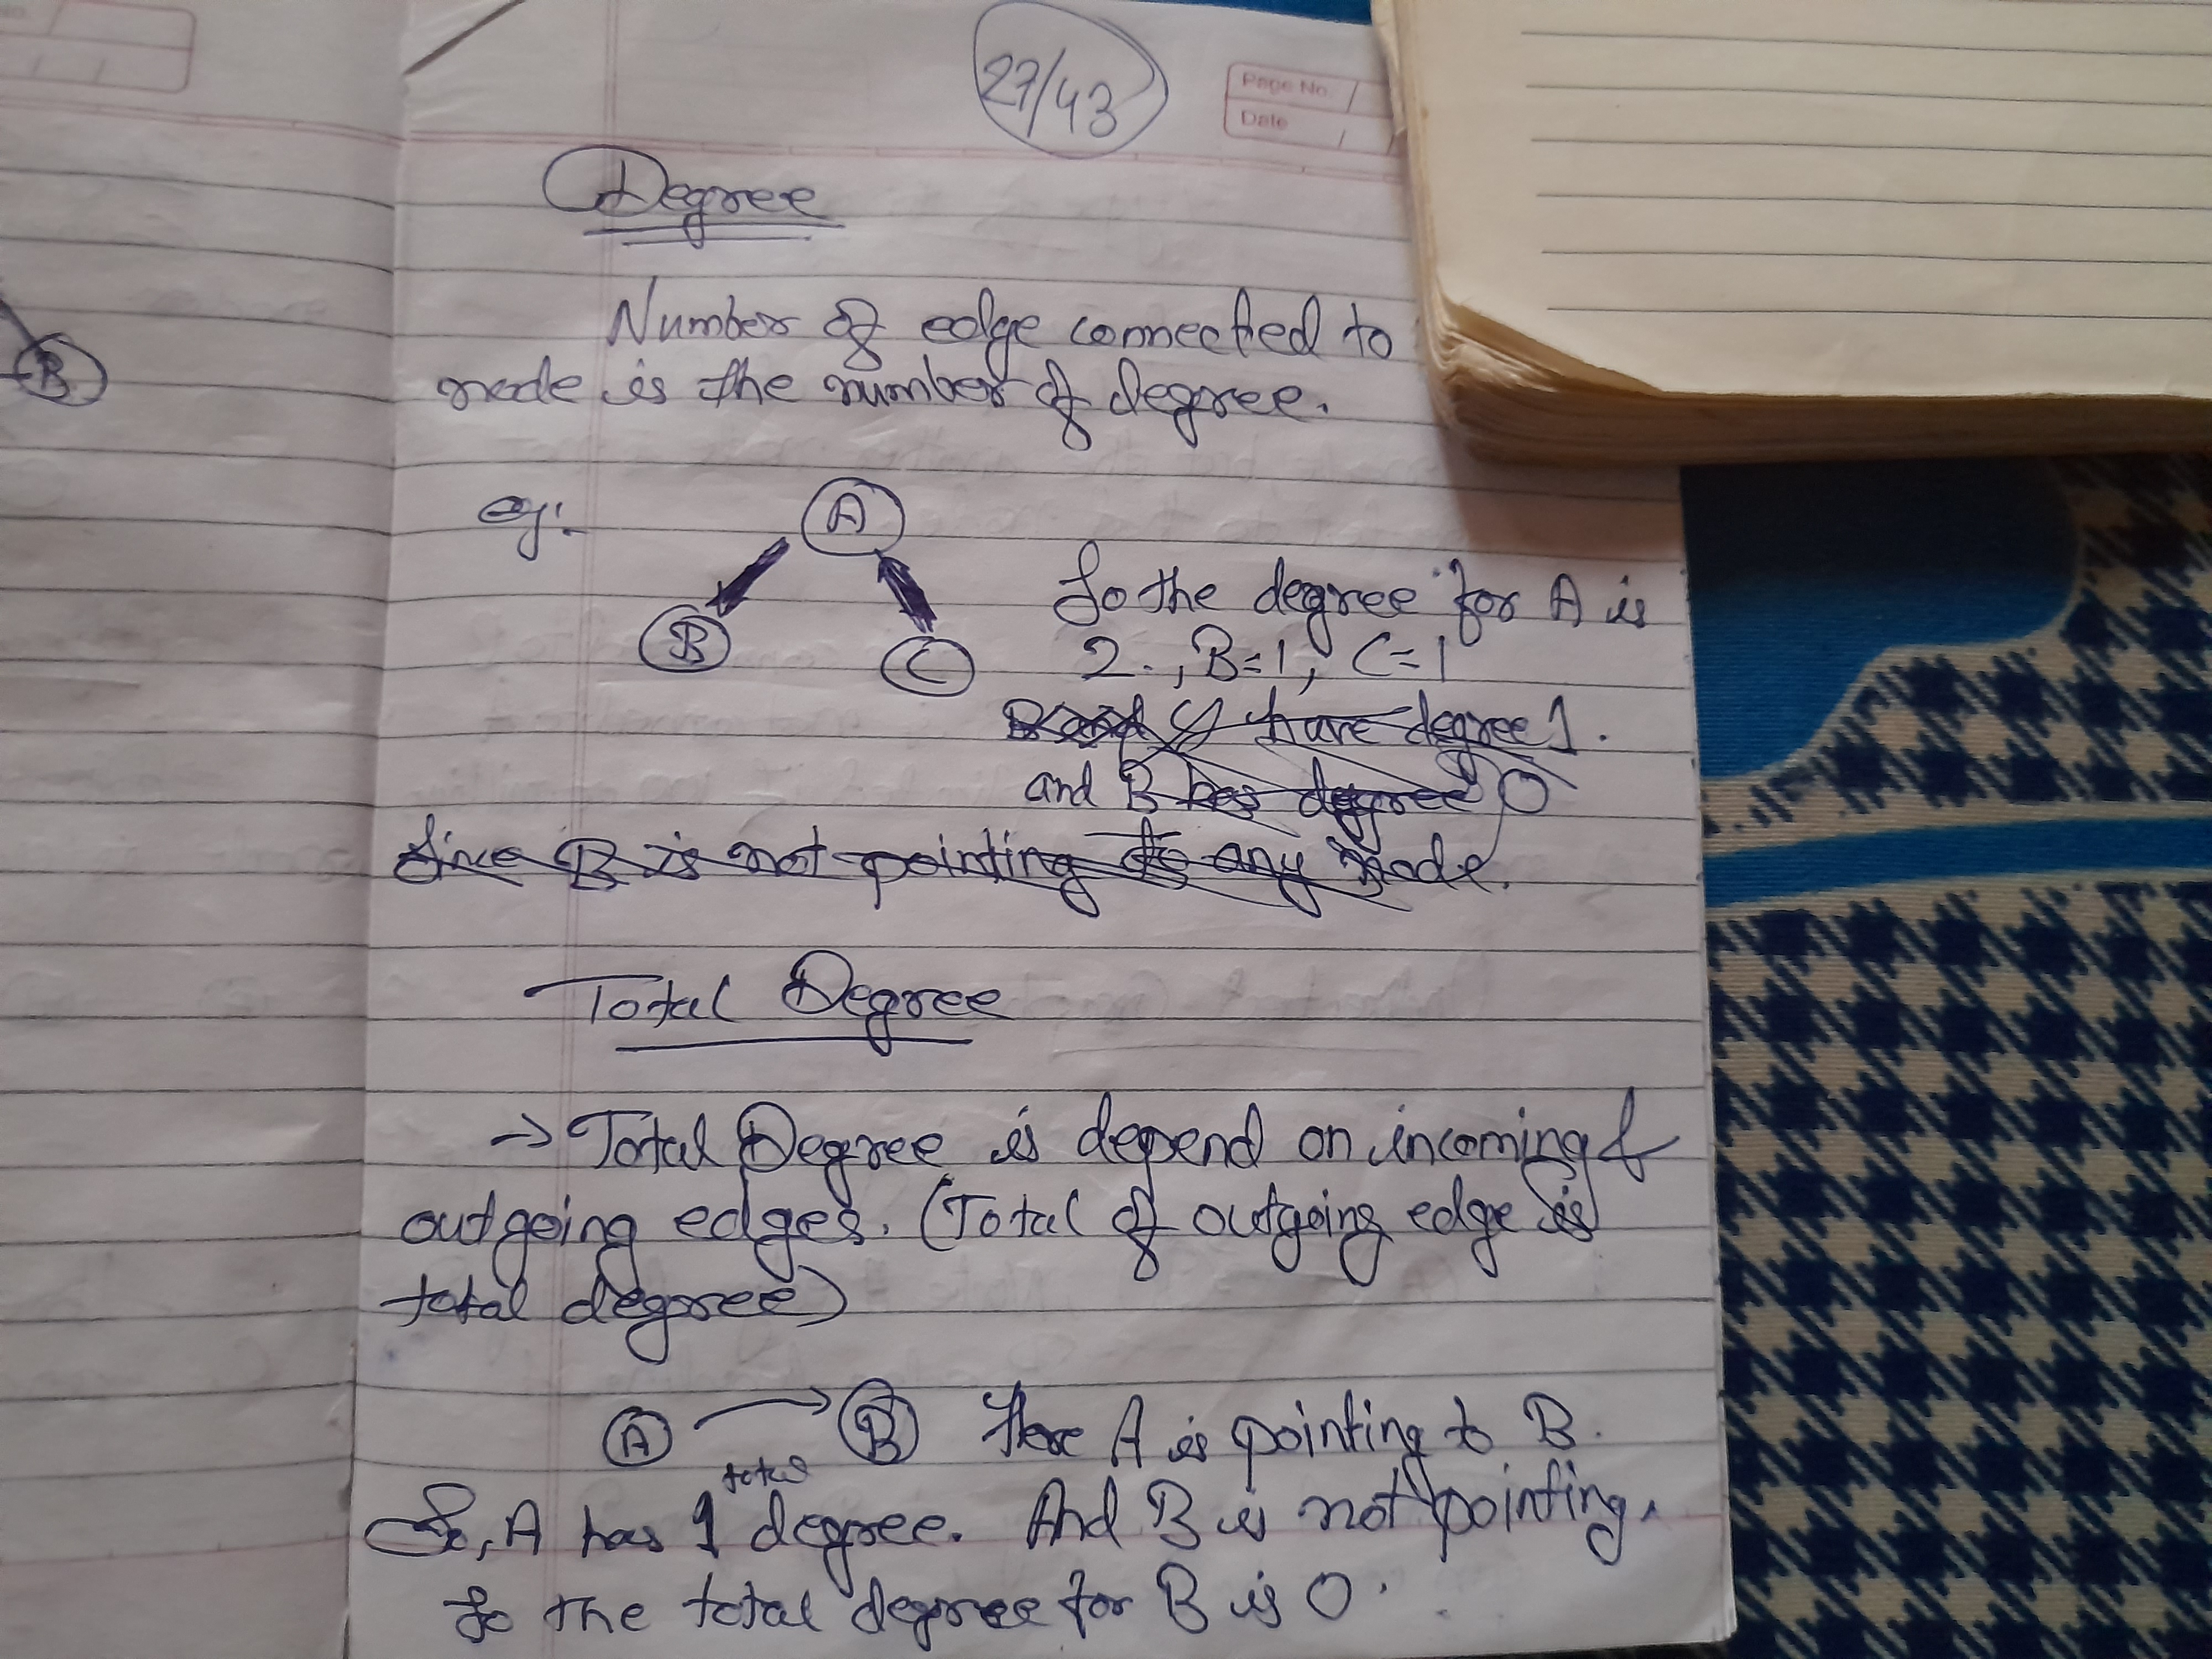 27/43
Page No.
Date
Degree
Number of edge connected to
node is the number of degree.
eg:-
A
B
C
So the degree for A is
2., B=1, C=1
have degree 1.
and B has degree 0
Since B is not pointing to any node.
Total Degree
-> Total Degree is depend on incoming &
outgoing edges. (Total of outgoing edge is
total degree)
A → B Here A is pointing to B.
total
So, A has 1 degree. And B is not pointing.
So the total degree for B is 0.
B